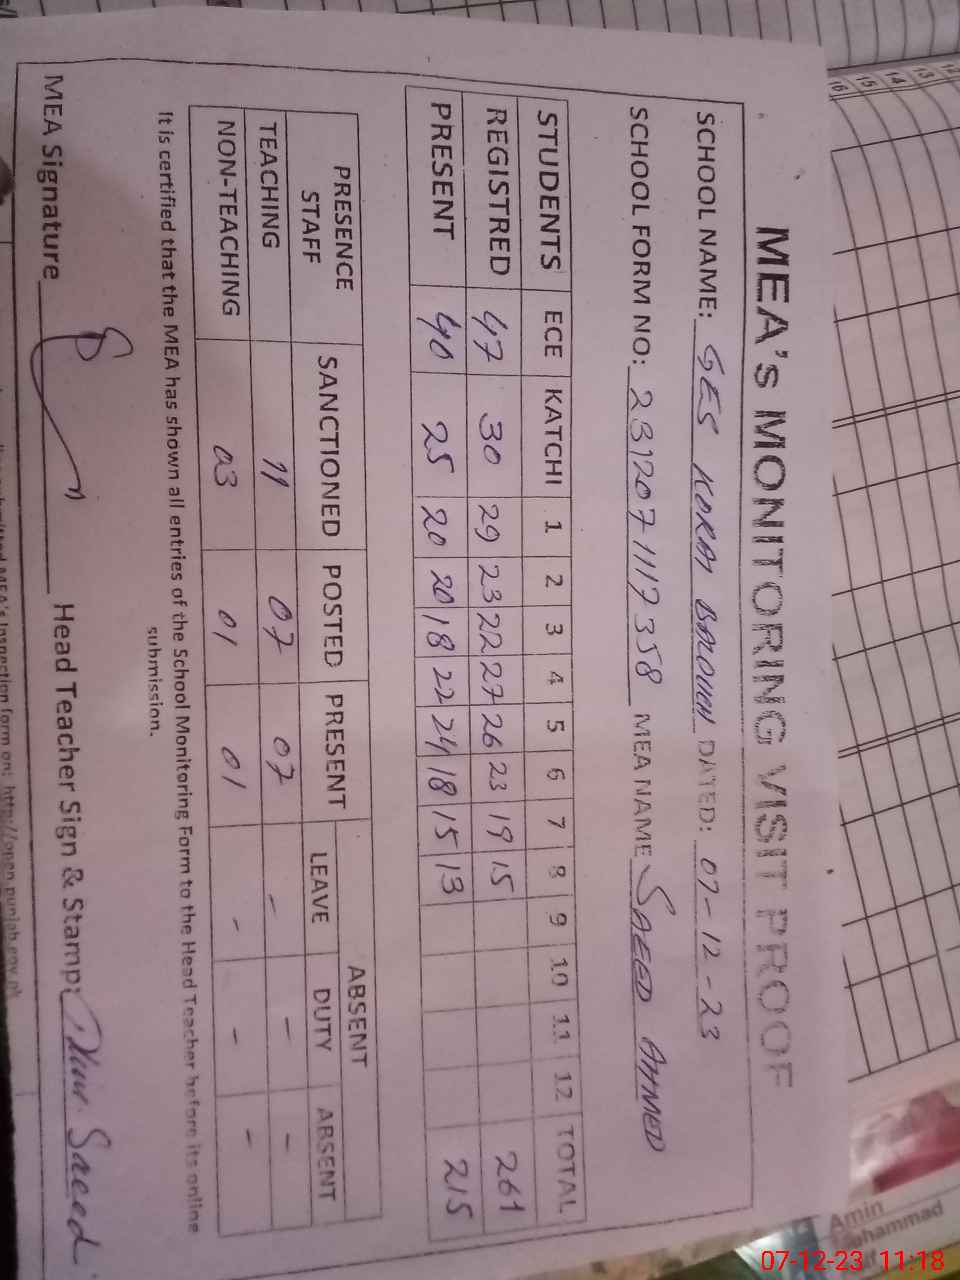 MEA's MONITORING VISIT PROOF
SCHOOL NAME: GES KORAI BALOUCH DATED: 07-12-23
SCHOOL FORM NO: 231207 1117 358 MEA NAME SAEED AHMED
STUDENTS ECE KATCHI 1 2 3 4 5 6 7 8 9 10 11 12 TOTAL
REGISTRED 47 30 29 23 22 27 26 23 19 15 261
PRESENT 40 25 20 20 18 22 24 18 15 13 215
PRESENCE STAFF SANCTIONED POSTED PRESENT ABSENT
LEAVE DUTY ABSENT
TEACHING 11 07 07 - - -
NON-TEACHING 03 01 01 - - -
It is certified that the MEA has shown all entries of the School Monitoring Form to the Head Teacher before its online
submission.
MEA Signature Head Teacher Sign & Stamp: Saeed
MEA's Inspection form on: http://open.punjab.gov.pk
16 15 14 13 12
Amin
Muhammad
07-12-23 11:18